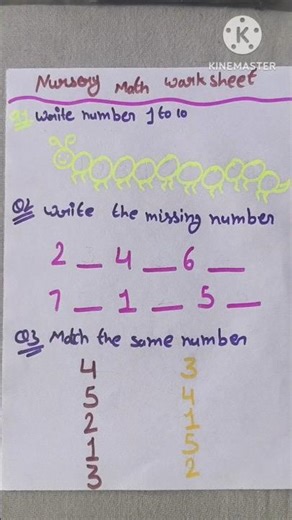 KINEMASTER
Nursory Math Worksheet
Q1 Write number 1 to 10
Q2 Write the missing number
2 _ 4 _ 6 _
7 _ 1 _ 5 _
Q3 Match the same number
4 3
5 4
2 1
1 5
3 2